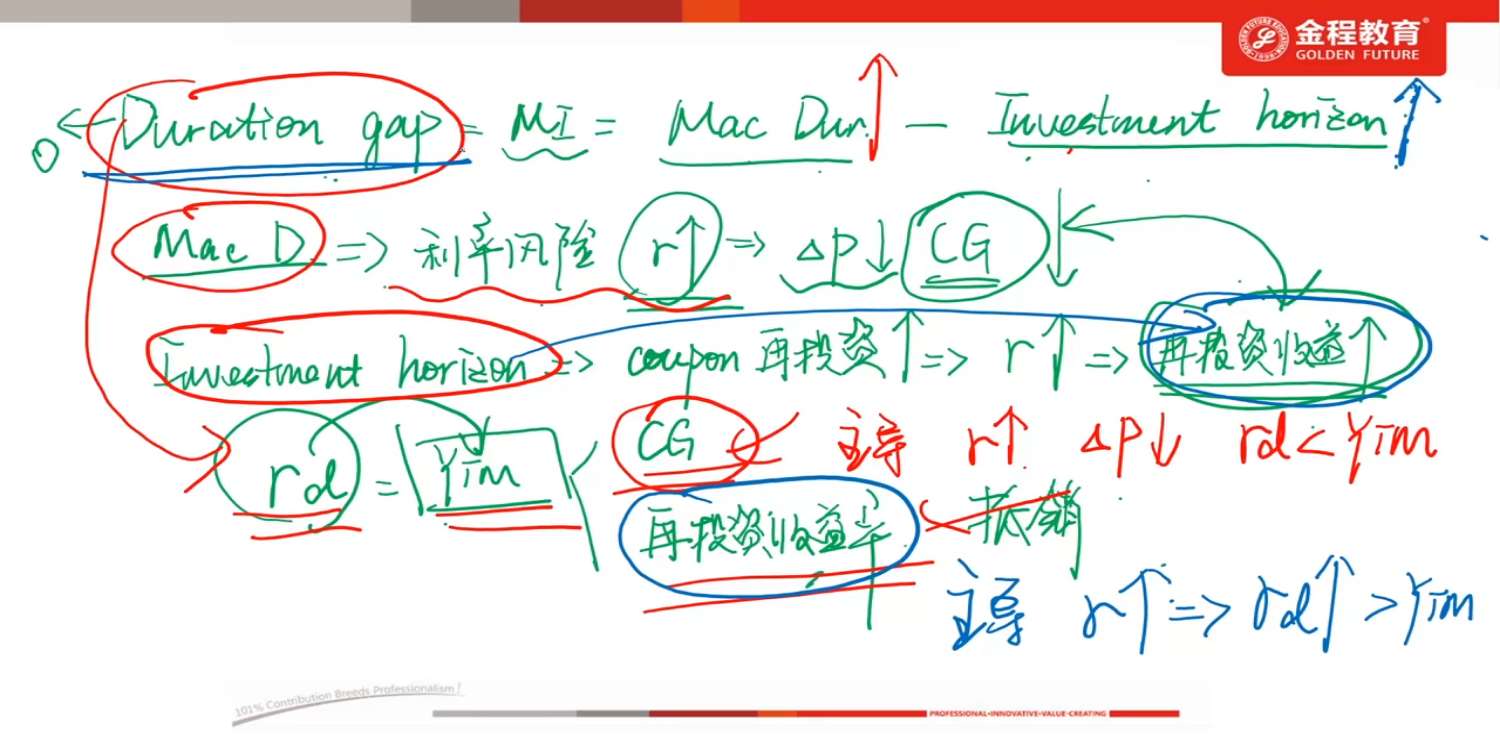 金程教育
GOLDEN FUTURE
0 ← Duration gap = MI = Mac Dur ↑ — Investment horizon ↑
Mac D => 利率风险 r↑ => ΔP↓ CG ↓
Investment horizon => coupon 再投资↑ => r↑ => 再投资收益↑
rd = YTM
CG 主导 r↑ ΔP↓ rd < YTM
再投资收益率 抵销
主导 r↑ => rd↑ > YTM
101% Contribution Breeds Professionalism!
PROFESSIONAL•INNOVATIVE•VALUE-CREATING